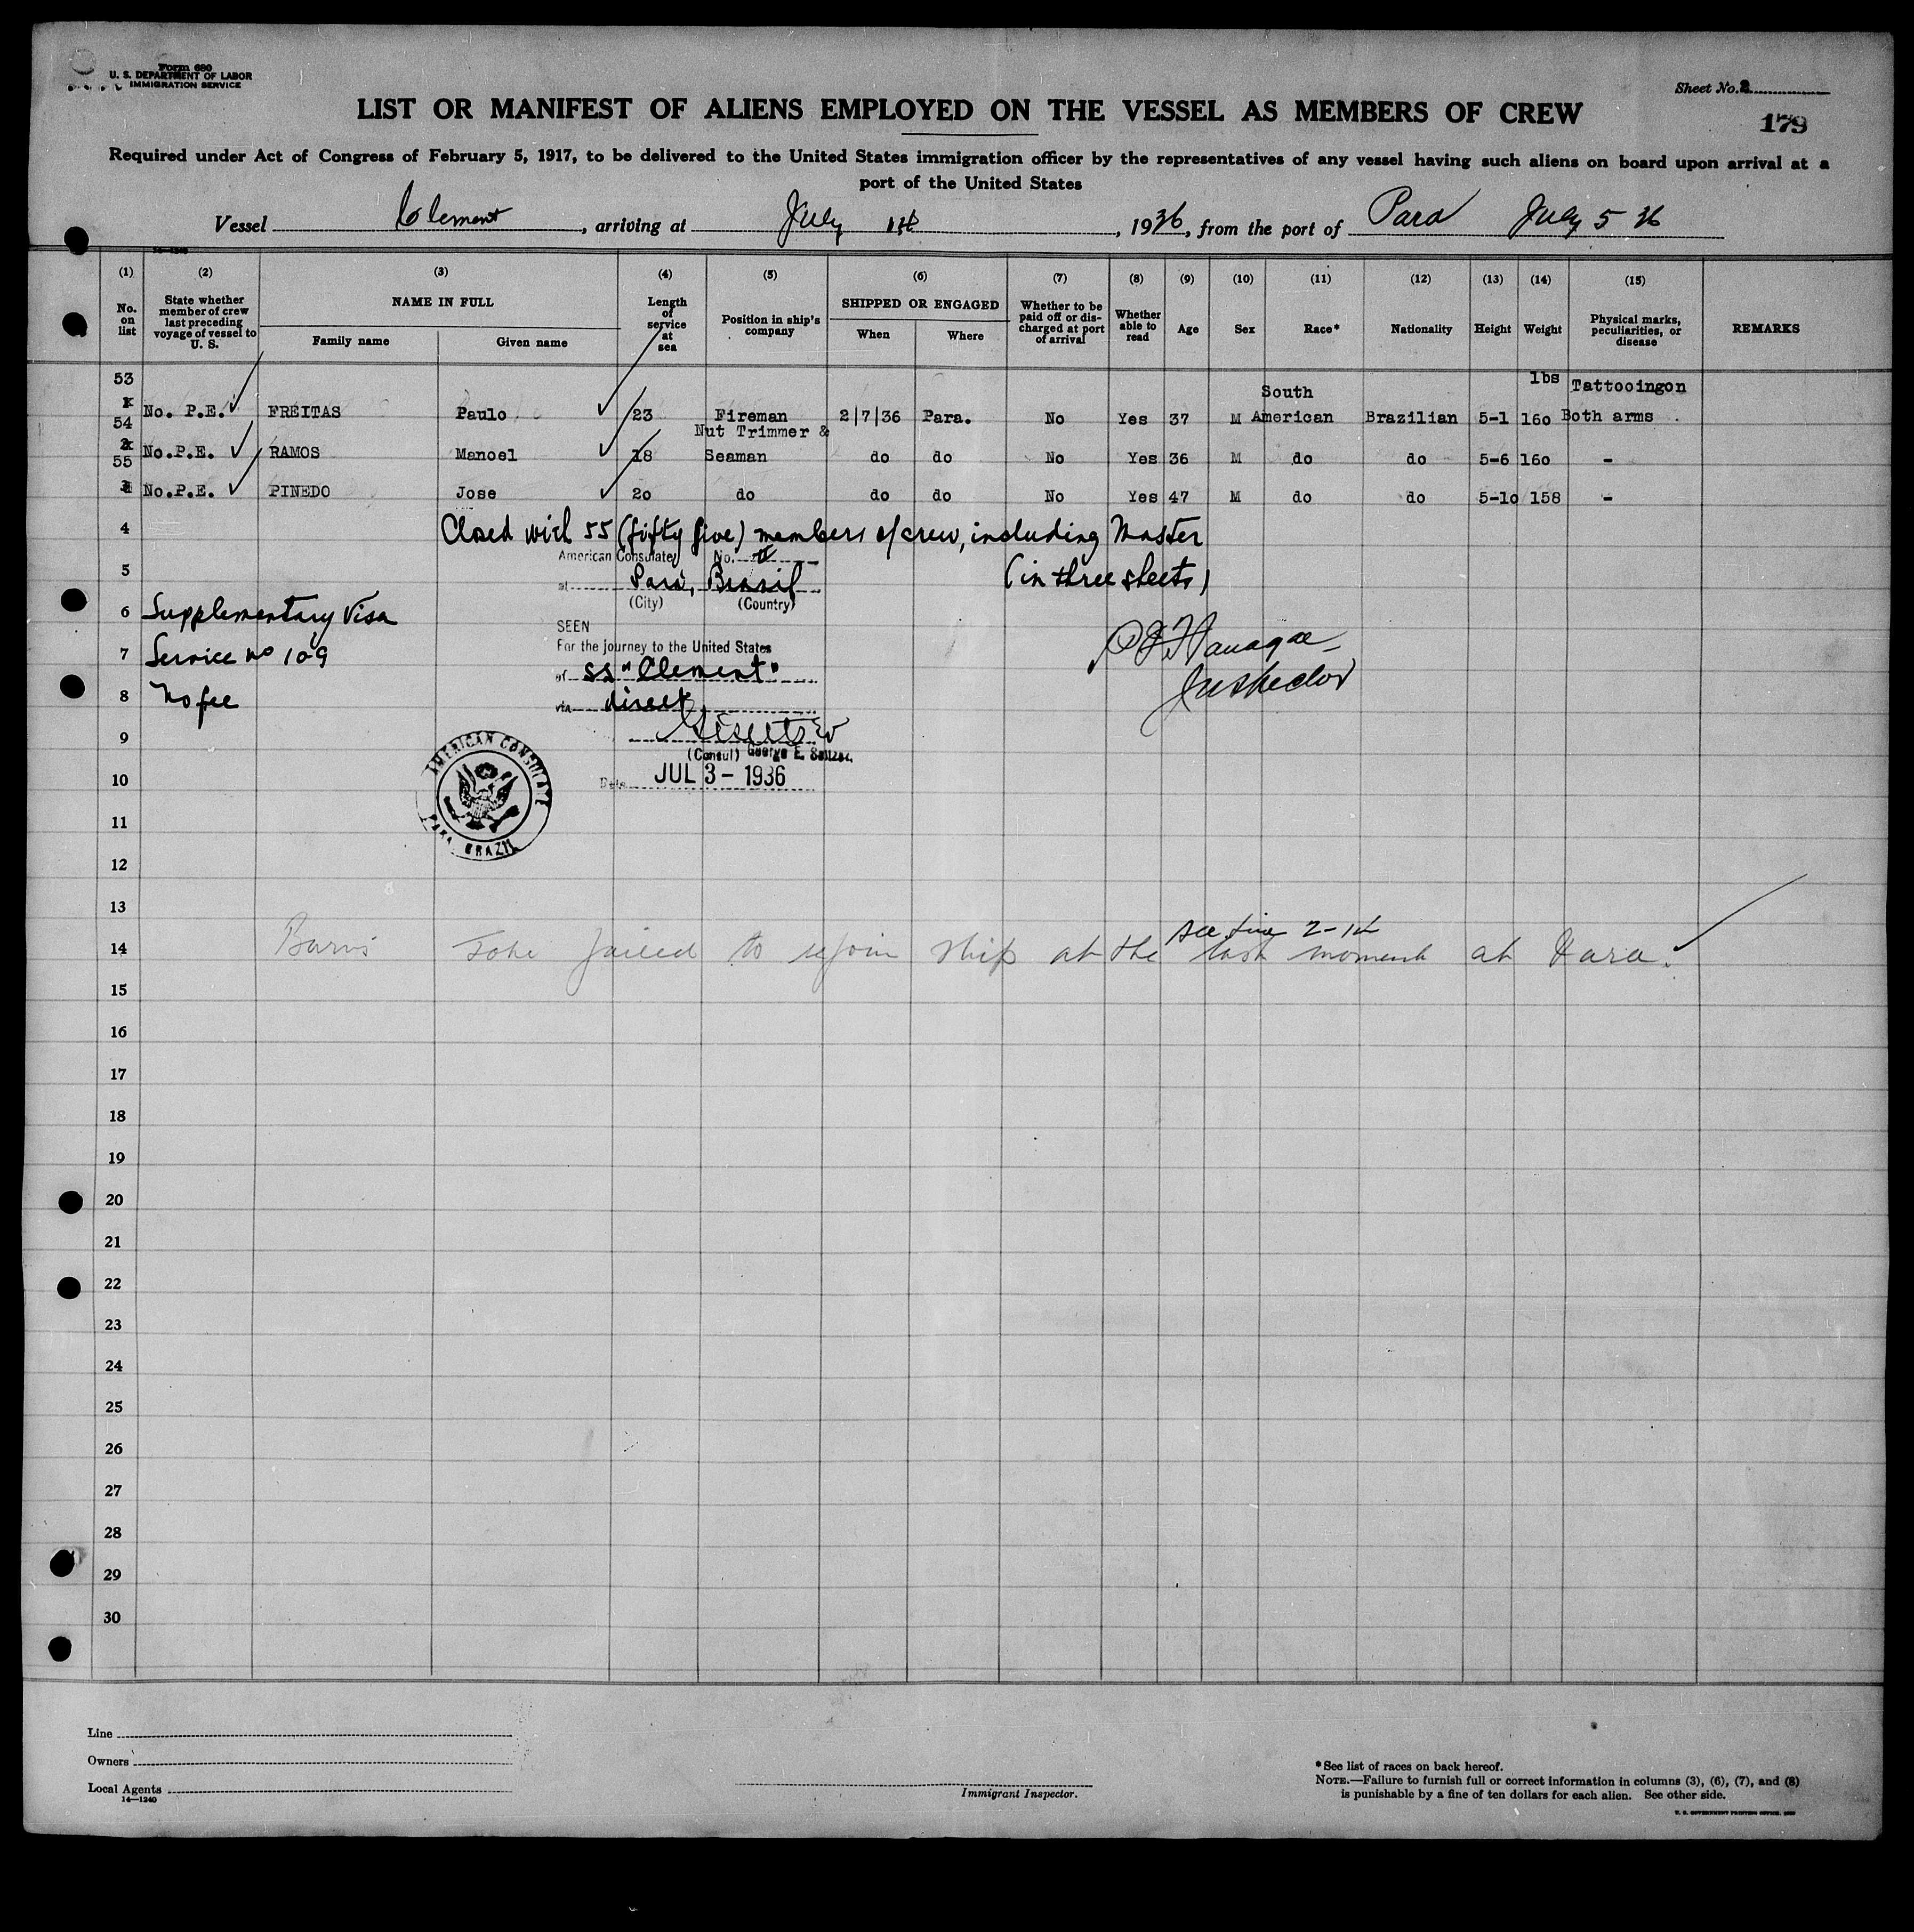 Form 680
U. S. DEPARTMENT OF LABOR
IMMIGRATION SERVICE
Sheet No. 2
LIST OR MANIFEST OF ALIENS EMPLOYED ON THE VESSEL AS MEMBERS OF CREW
179
Required under Act of Congress of February 5, 1917, to be delivered to the United States immigration officer by the representatives of any vessel having such aliens on board upon arrival at a
port of the United States
Vessel Clement, arriving at July, 1936, from the port of Para July 5 36
(1) (2) (3) (4) (5) (6) (7) (8) (9) (10) (11) (12) (13) (14) (15)
No. on list
State whether member of crew last preceding voyage of vessel to U. S.
NAME IN FULL
Family name
Given name
Length of service at sea
Position in ship's company
SHIPPED OR ENGAGED
When
Where
Whether to be paid off or discharged at port of arrival
Whether able to read
Age
Sex
Race*
Nationality
Height
Weight
Physical marks, peculiarities, or disease
REMARKS
53 South lbs Tattooingon
1 No. P.E. FREITAS Paulo 23 Fireman 2|7|36 Para. No Yes 37 M American Brazilian 5-1 160 Both arms
54 Nut Trimmer &
2 No.P.E. RAMOS Manoel 18 Seaman do do No Yes 36 M do do 5-6 160 -
55
3 No.P.E. PINEDO Jose 20 do do do No Yes 47 M do do 5-10 158 -
4 Closed with 55 (fifty five) members of crew, including Master
American Consulate No.
5 (in three sheets)
at Pará, Brasil
(City) (Country)
6 Supplementary Visa
SEEN
For the journey to the United States
7 Service No 109
of SS "Clement"
Inspector
8 No fee
via direct
9
(Consul) George E. Seltzer.
10
Date JUL 3 - 1936
AMERICAN CONSULATE
PARA, BRAZIL
11
12
13
see line 2-14
14 Burns John failed to rejoin ship at the last moment at Para.
15
16
17
18
19
20
21
22
23
24
25
26
27
28
29
30
Line
Owners
Local Agents
14—1240
Immigrant Inspector.
*See list of races on back hereof.
NOTE.—Failure to furnish full or correct information in columns (3), (6), (7), and (8)
is punishable by a fine of ten dollars for each alien. See other side.
U. S. GOVERNMENT PRINTING OFFICE